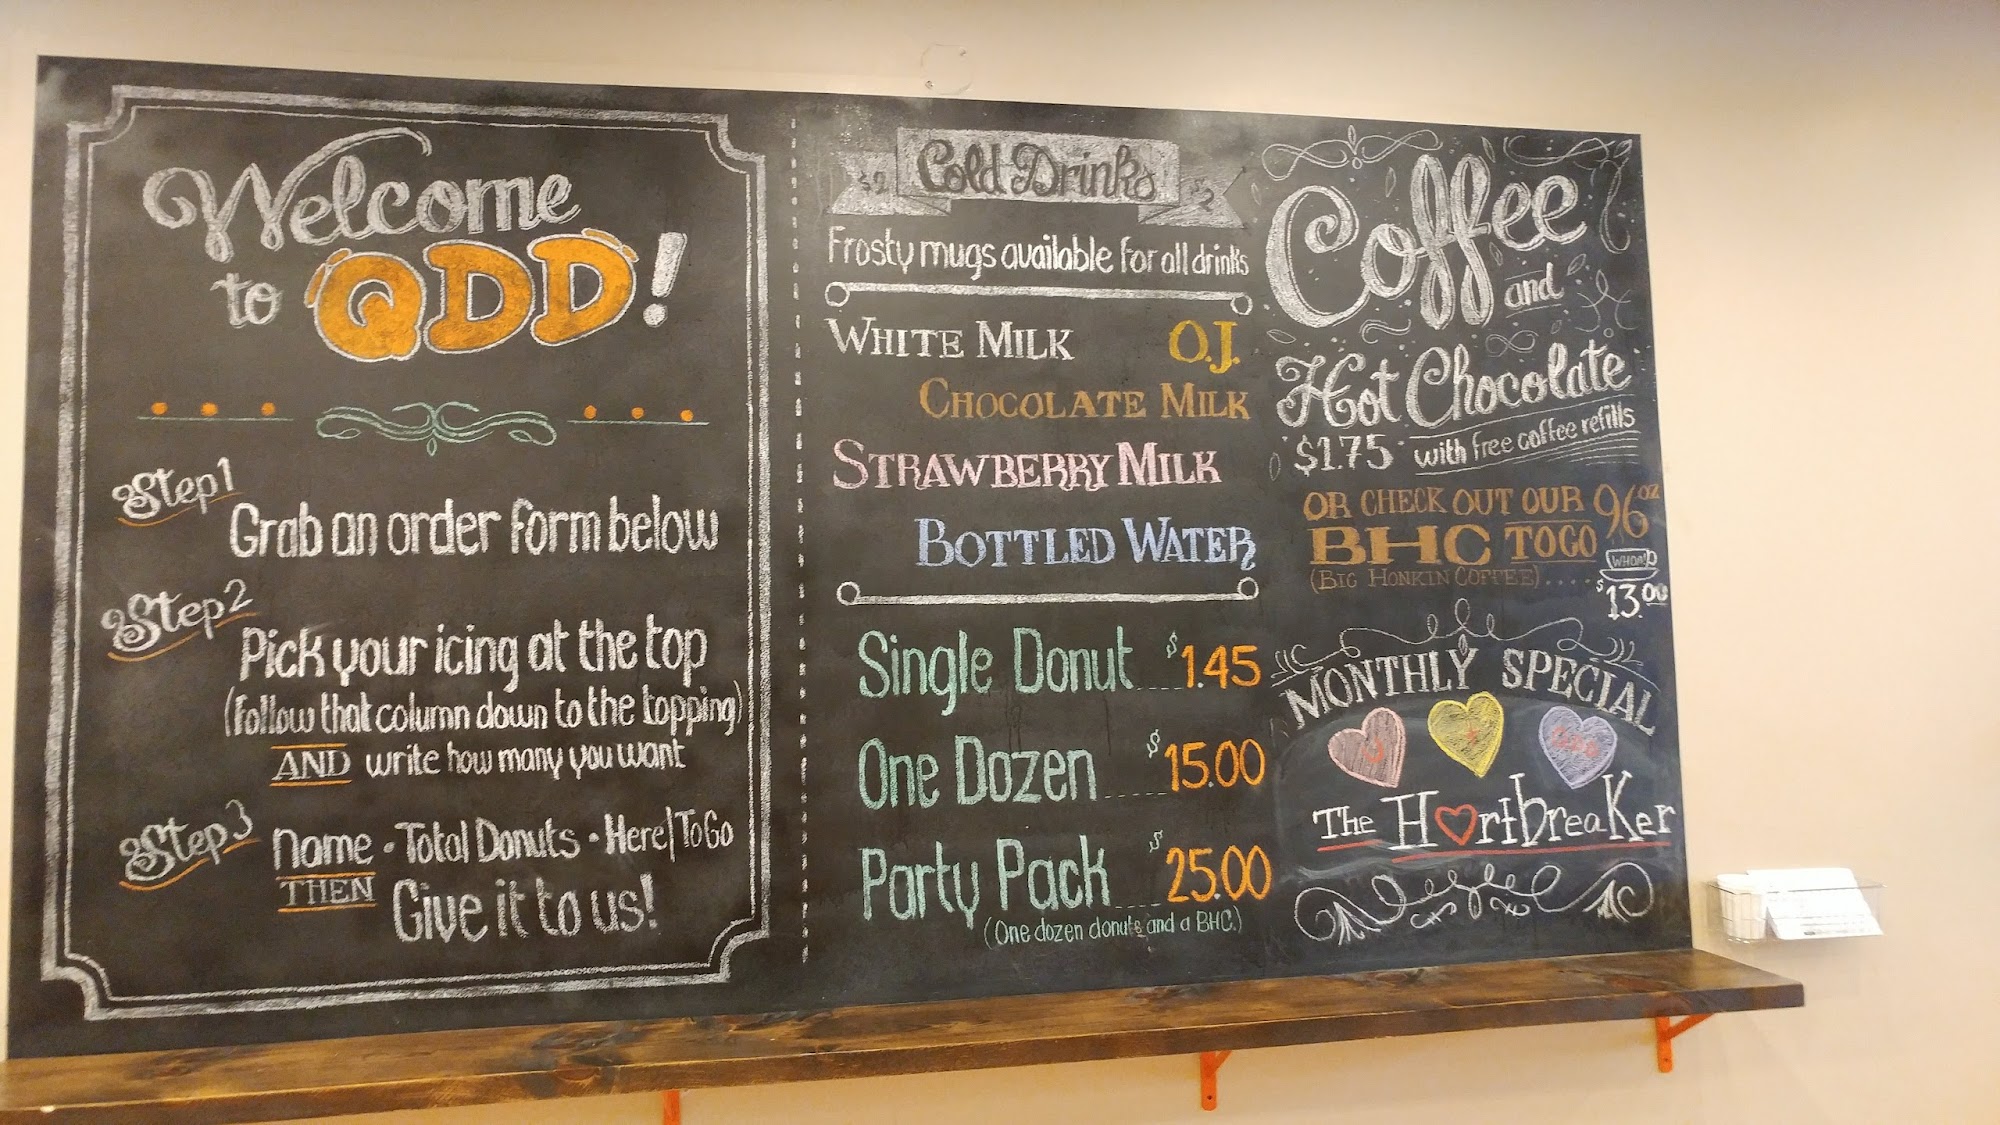 Welcome
to QDD!
Step 1
Grab an order form below
Step 2
Pick your icing at the top
(follow that column down to the topping)
AND write how many you want
Step 3
Name • Total Donuts • Here|To Go
THEN Give it to us!
$2 Cold Drinks $2
Frosty mugs available for all drinks
WHITE MILK O.J.
CHOCOLATE MILK
STRAWBERRY MILK
BOTTLED WATER
Single Donut $1.45
One Dozen $15.00
Party Pack $25.00
(One dozen donuts and a BHC.)
Coffee
and
Hot Chocolate
$1.75 with free coffee refills
OR CHECK OUT OUR 96 OZ
BHC TO GO
WHOA!
(BIG HONKIN COFFEE).... $13.00
MONTHLY SPECIAL
THE HeartbreaKer